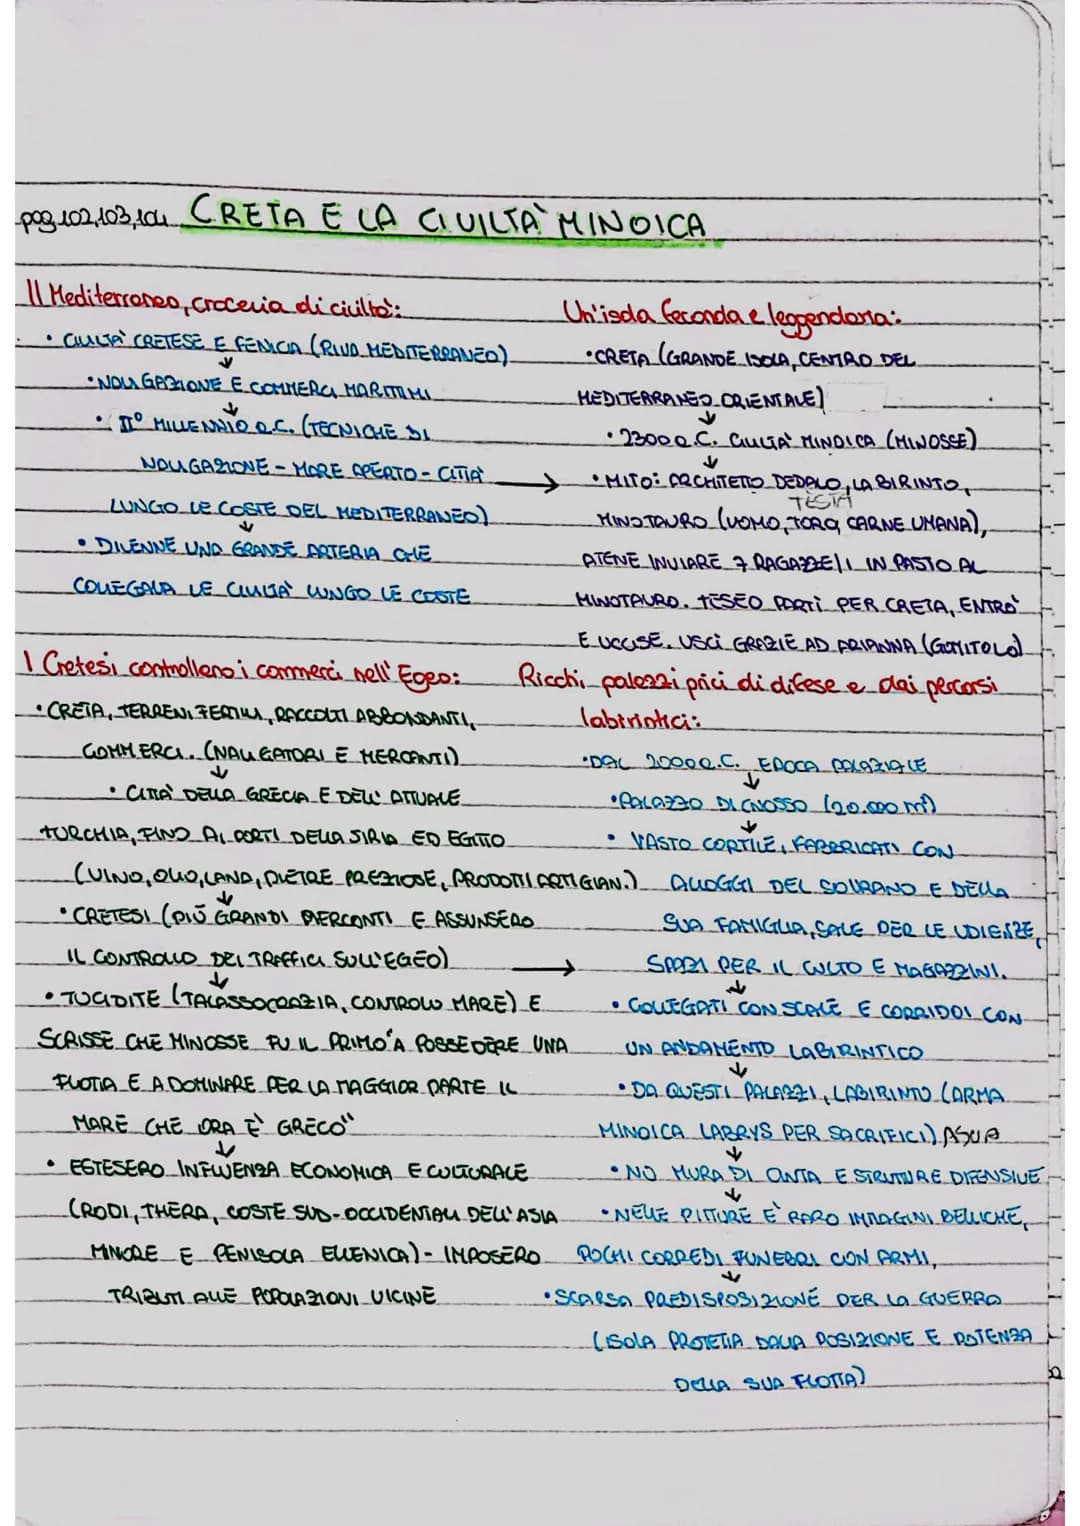 pag 102,103,104 CRETA E LA CIVILTÀ MINOICA
Il Mediterraneo, crocevia di civiltà:
• CIVILTÀ CRETESE E FENICIA (RIVA MEDITERRANEO)
↓
• NAVIGAZIONE E COMMERCI MARITTIMI
↓
• II° MILLENNIO a.C. (TECNICHE DI
NAVIGAZIONE - MARE APERTO - CITTÀ
LUNGO LE COSTE DEL MEDITERRANEO)
↓
• DIVENNE UNA GRANDE ARTERIA CHE
COLLEGAVA LE CIVILTÀ LUNGO LE COSTE
Un'isola feconda e leggendaria:
• CRETA (GRANDE ISOLA, CENTRO DEL
MEDITERRANEO ORIENTALE)
↓
• 2300 a.C. CIVILTÀ MINOICA (MINOSSE)
↓
→ • MITO: ARCHITETTO DEDALO, LABIRINTO,
TESTA
MINOTAURO (UOMO, TORO, CARNE UMANA),
ATENE INVIARE 7 RAGAZZE/I IN PASTO AL
MINOTAURO. TESEO PARTÌ PER CRETA, ENTRÒ
E UCCISE. USCÌ GRAZIE AD ARIANNA (GOMITOLO)
I Cretesi controllano i commerci nell'Egeo:
• CRETA, TERRENI FERTILI, RACCOLTI ABBONDANTI,
COMMERCI. (NAVIGATORI E MERCANTI)
↓
• CITTÀ DELLA GRECIA E DELL'ATTUALE
TURCHIA, FINO AI PORTI DELLA SIRIA ED EGITTO
(VINO, OLIO, LANA, PIETRE PREZIOSE, PRODOTTI ARTIGIAN.)
↓
• CRETESI (PIÙ GRANDI MERCANTI E ASSUNSERO
IL CONTROLLO DEI TRAFFICI SULL'EGEO)
↓
• TUCIDITE (TALASSOCRAZIA, CONTROLLO MARE) E
SCRISSE CHE MINOSSE FU IL PRIMO "A POSSEDERE UNA
FLOTTA E A DOMINARE PER LA MAGGIOR PARTE IL
MARE CHE ORA È GRECO"
↓
• ESTESERO INFLUENZA ECONOMICA E CULTURALE
(RODI, THERA, COSTE SUD-OCCIDENTALI DELL'ASIA
MINORE E PENISOLA ELLENICA) - IMPOSERO
TRIBUTI ALLE POPOLAZIONI VICINE
Ricchi palazzi privi di difese e dai percorsi
labirintici:
• DAL 2000 a.C. EPOCA PALAZIALE
↓
• PALAZZO DI CNOSSO (20.000 m²)
↓
• VASTO CORTILE, FABBRICATI CON
ALLOGGI DEL SOVRANO E DELLA
SUA FAMIGLIA, SALE PER LE UDIENZE,
→ SPAZI PER IL CULTO E MAGAZZINI.
↓
• COLLEGATI CON SCALE E CORRIDOI CON
UN ANDAMENTO LABIRINTICO
↓
• DA QUESTI PALAZZI, LABIRINTO (ARMA
MINOICA LABRYS PER SACRIFICI) ASCIA
↓
• NO MURA DI CINTA E STRUTTURE DIFENSIVE
↓
• NELLE PITTURE È RARO IMMAGINI BELLICHE,
POCHI CORREDI FUNEBRI CON ARMI,
↓
• SCARSA PREDISPOSIZIONE PER LA GUERRA
(ISOLA PROTETTA DALLA POSIZIONE E POTENZA
DELLA SUA FLOTTA)